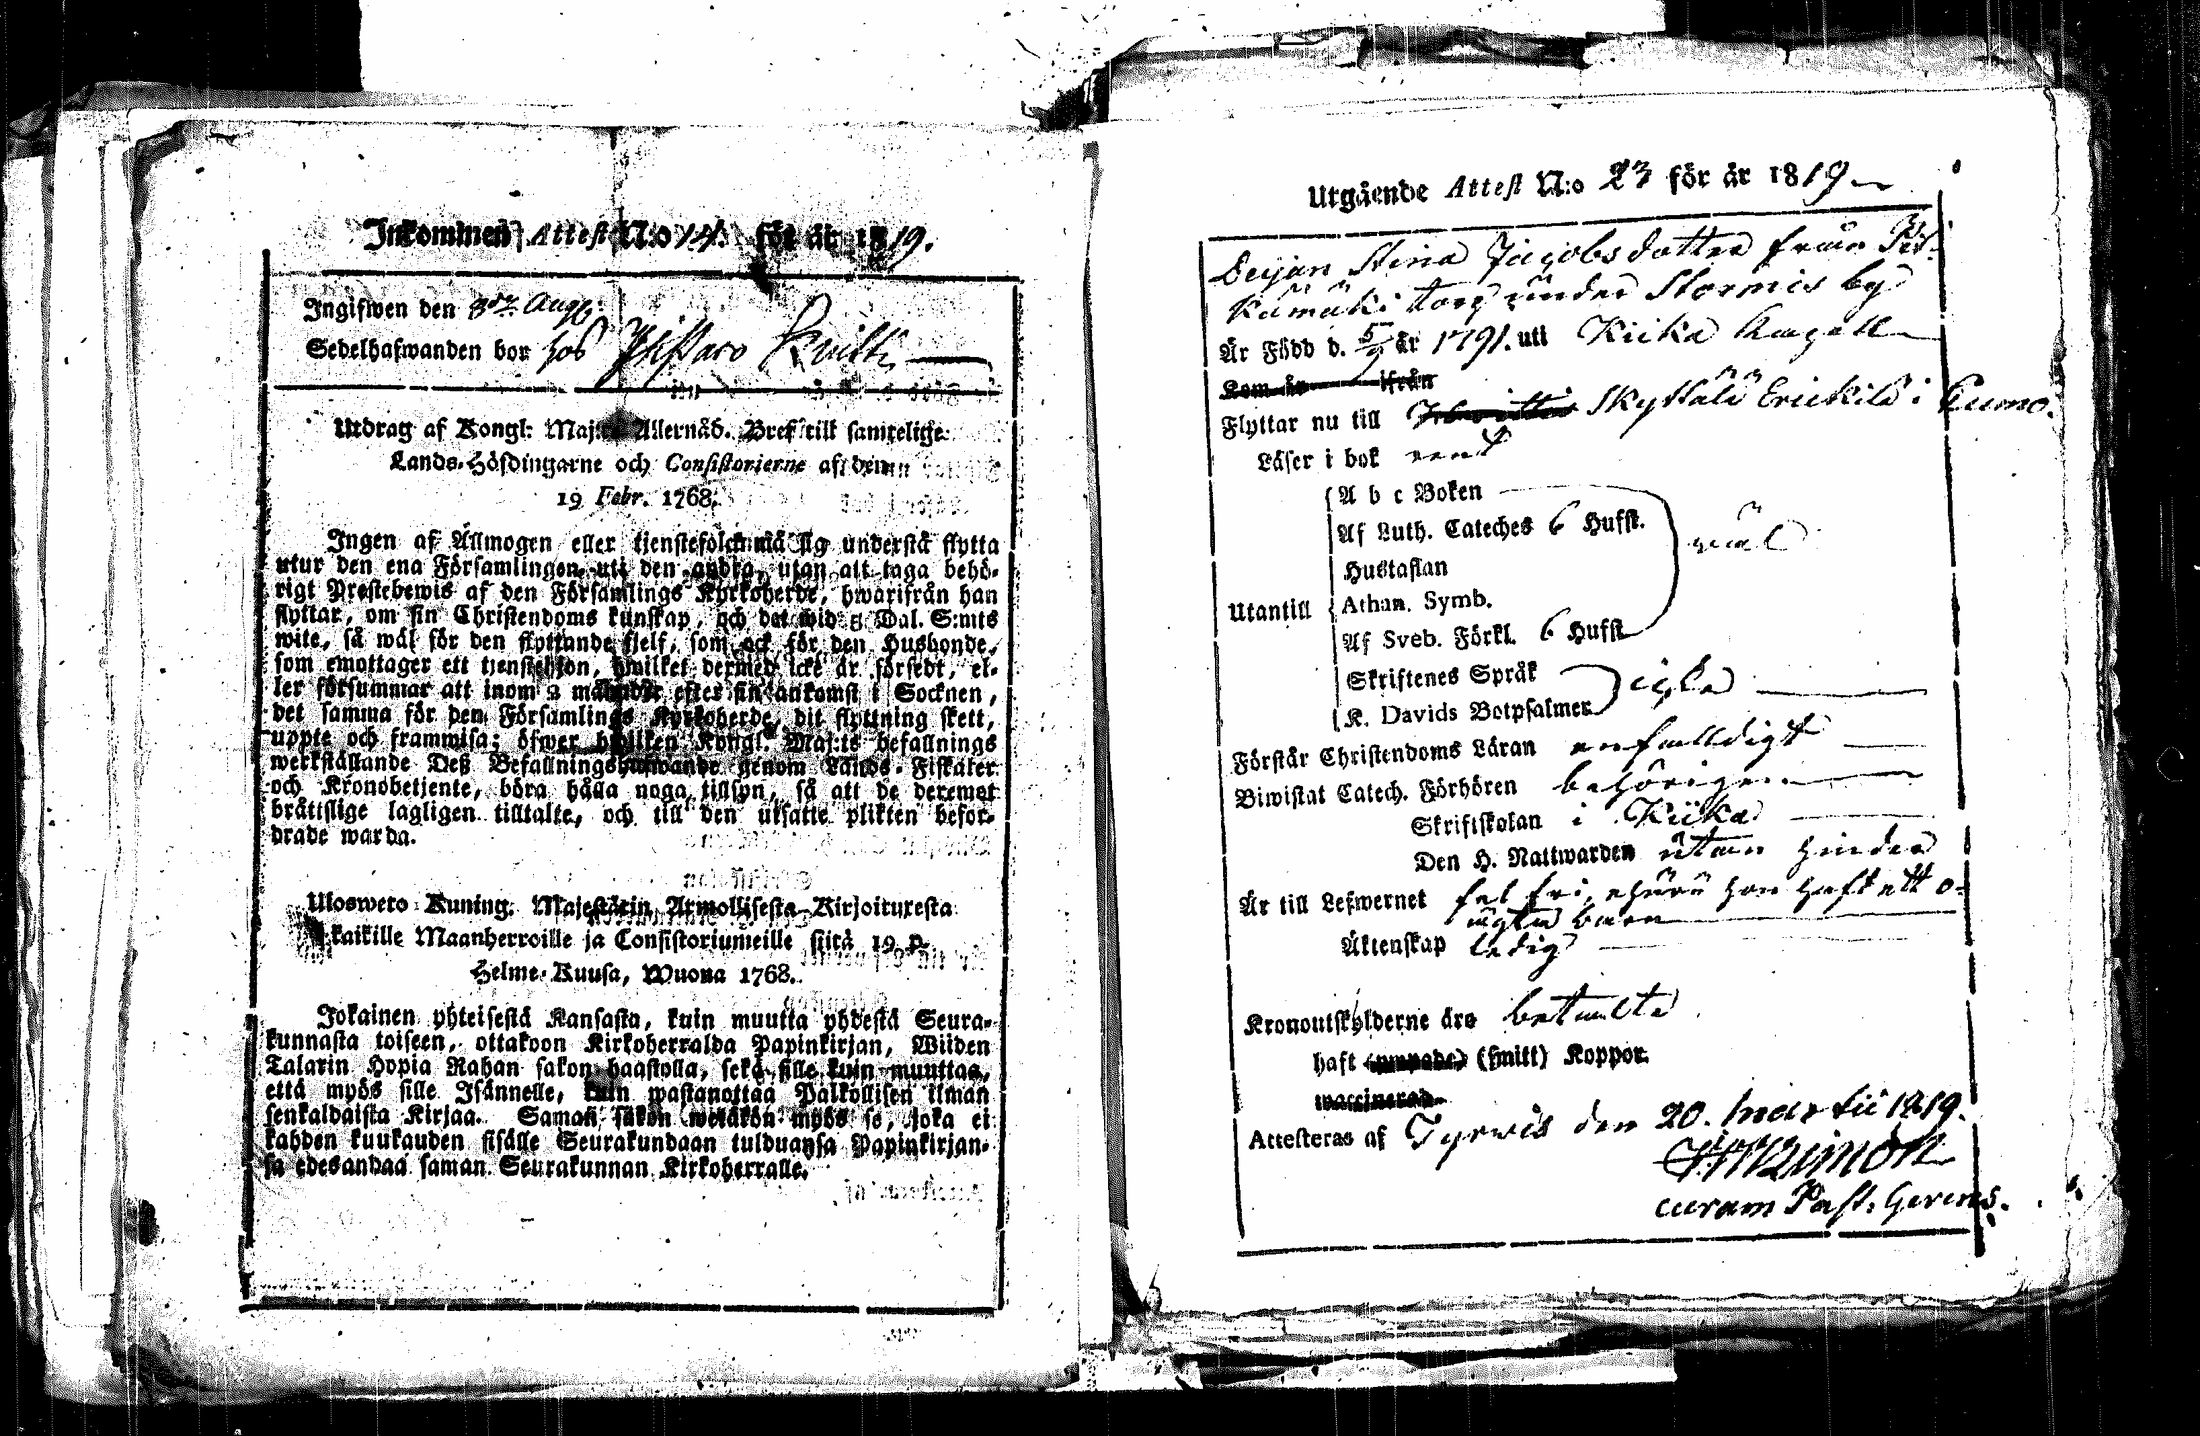 Inkommen Attest N:o 14. för år 1819.
Ingifwen den 8de Aug:
Sedelhafwanden bor hos
Utdrag af Kongl: Maj:ts Allernåd. Bref till samtelige
Lands-Höfdingarne och Consistorierne af den
19 Febr. 1768.
Ingen af Allmogen eller tjenstefolck må sig understå flytta
utur den ena Församlingen uti den andra, utan att taga behö-
rigt Prestebewis af den Församlings Kyrkoherde, hwarifrån han
flyttar, om sin Christendoms kunskap, och det wid 5 Dal. S:mts
wite, så wäl för den flyttande sjelf, som ock för den Husbonde,
som emottager ett tjenstehjon, hwilket dermed icke är försedt, el-
ler försummar att inom 2 månader efter sin ankomst i Socknen,
det samma för den Församlings Kyrkoherde, dit flyttning skett,
uppte och frammisa; öfwer hwilken Kongl. Maj:ts befallnings
werkställande Deß Befallningshafwande genom Lands-Fiskaler
och Kronobetjente, böra hålla noga tillsyn, så att de deremot
bråttslige lagligen tilltalte, och till den utsatte plikten befor-
drade warda.
Ulosweto Kuning. Majestätin Armollisesta Kirjoituxesta
kaikille Maanherroille ja Consistoriumeille siitä 19 p.
Helme-Kuusa, Wuona 1768.
Jokainen yhteisestä Kansasta, kuin muutta yhdestä Seura-
kunnasta toiseen, ottakoon Kirkoherralda Papinkirjan, Wiiden
Talarin Hopia Rahan sakon haastolla, sekä sille kuin muuttaa,
että myös sille Isännelle, kuin wastanottaa Palkollisen ilman
senkaldaista Kirjaa. Saman sakon wetäkön myös se, joka ei
kahden kuukauden sisälle Seurakundaan tulduansa Papinkirjan-
sa edesandaa saman Seurakunnan Kirkoherralle.
Utgående Attest N:o 23 för år 1819
Pigan Stina Jacobsdotter från Pit-
kämäki torp under Stormis by
Är Född d. 5/9 år 1791. uti Kiika Capell
Kom år ifrån
Flyttar nu till Skyttälä Erickilä i Cumo.
Läser i bok rent
Utantill
A b c Boken
Af Luth. Cateches 6 Hufst.
Hustaflan
Athan. Symb.
Af Sveb. Förkl. 6 Hufst
wäl
Skriftenes Språk
K. Davids Botpsalmer
icke
Förstår Christendoms Läran enfalldigt
Biwistat Catech. Förhören behörigen
Skriftskolan i Kiika
Den H. Nattwarden utan hinder
Är till Lefwernet fel fri, ehuru hon haft ett o-
ägta barn
Äktenskap ledig
Kronoutskylderne äro betalte
haft (smitt) Koppor.
waccinerad
Attesteras af Tyrwis den 20. Martii 1819.
curam Past: Gerens.